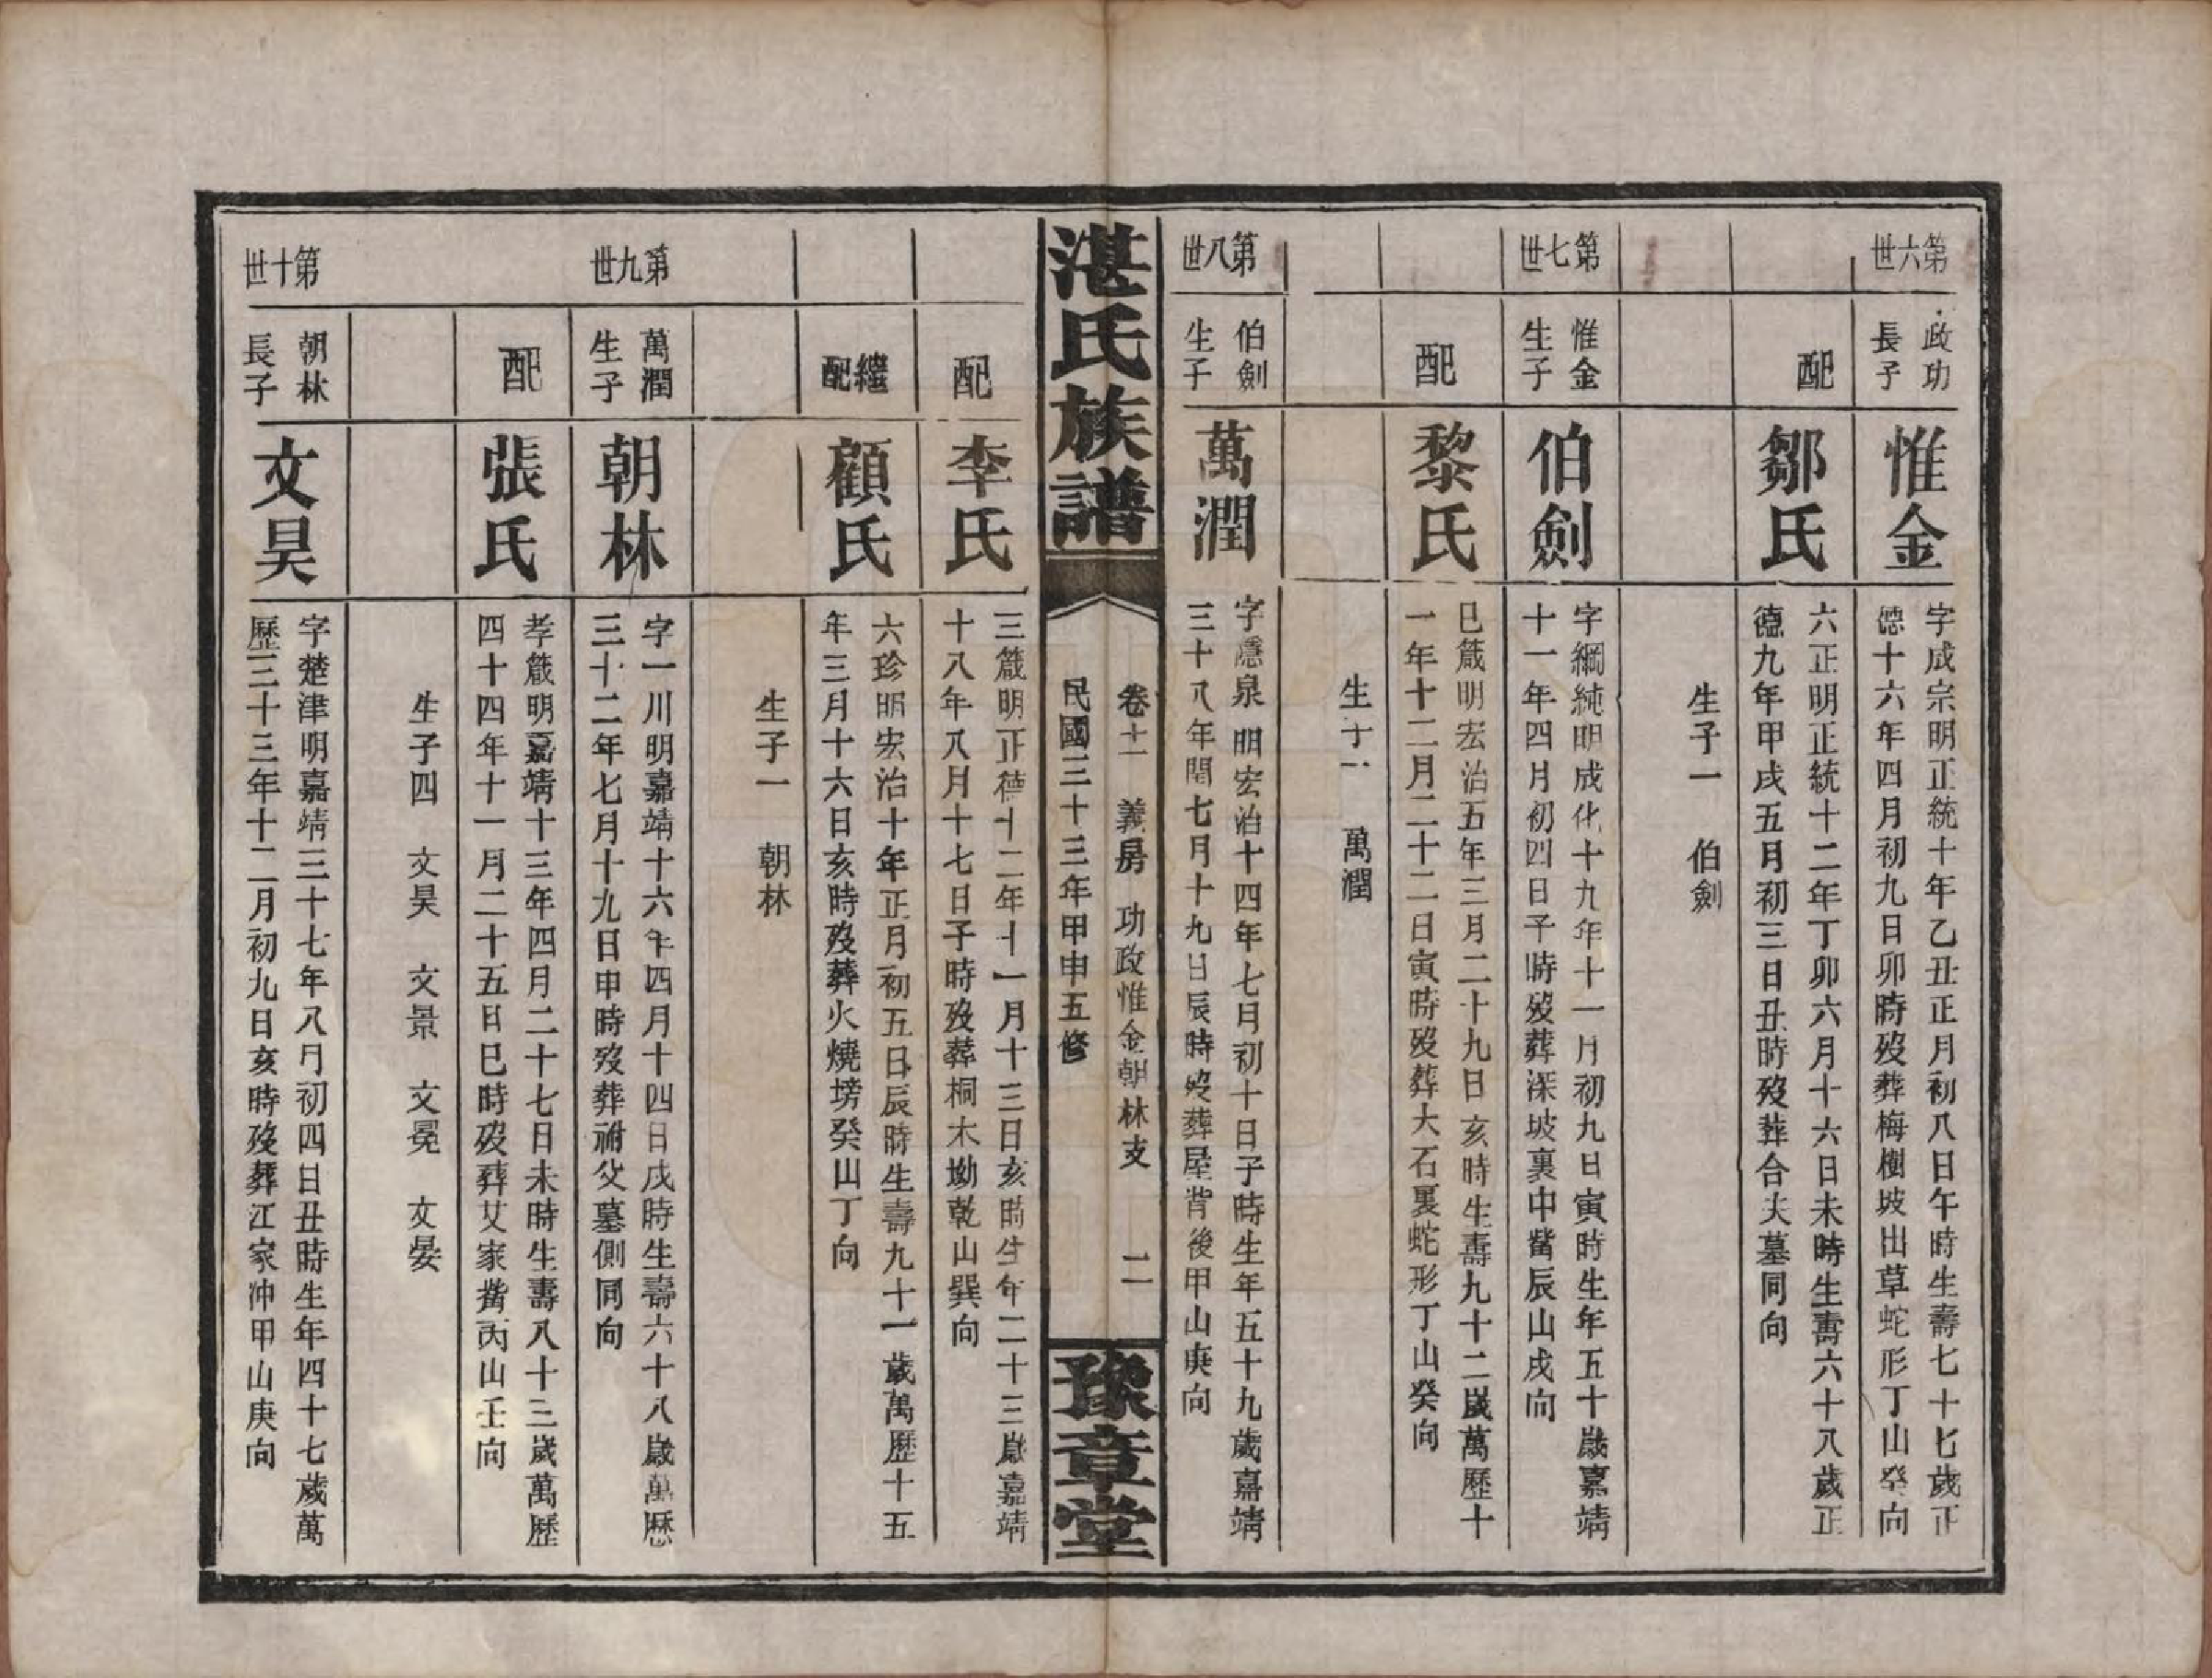 第六世
政功
長子
惟金
字成宗明正統十年乙丑正月初八日午時生壽七十七歲正
德十六年四月初九日卯時歿葬梅樹坡出草蛇形丁山癸向
配
鄒氏
六正明正統十二年丁卯六月十六日未時生壽六十八歲正
德九年甲戌五月初三日丑時歿葬合夫墓同向
生子一 伯劍
第七世
惟金
生子
伯劍
字綱純明成化十九年十一月初九日寅時生年五十歲嘉靖
十一年四月初四日子時歿葬深坡裏中嘴辰山戌向
配
黎氏
巳箴明宏治五年三月二十九日亥時生壽九十二歲萬歷十
一年十二月二十二日寅時歿葬大石裏蛇形丁山癸向
生子一 萬潤
第八世
伯劍
生子
萬潤
字隱泉明宏治十四年七月初十日子時生年五十九歲嘉靖
三十八年閏七月十九日辰時歿葬屋背後甲山庚向
湛氏族譜
卷十一 義房 功政惟金朝林支 二
民國三十三年甲申五修
豫章堂
配
李氏
三箴明正德十二年十一月十三日亥時生年二十三歲嘉靖
十八年八月十七日子時歿葬桐木坳乾山巽向
繼配
顧氏
六珍明宏治十年正月初五日辰時生壽九十一歲萬歷十五
年三月十六日亥時歿葬火燒塝癸山丁向
生子一 朝林
第九世
萬潤
生子
朝林
字一川明嘉靖十六年四月十四日戌時生壽六十八歲萬歷
三十二年七月十九日申時歿葬祔父墓側同向
配
張氏
孝箴明嘉靖十三年四月二十七日未時生壽八十三歲萬歷
四十四年十一月二十五日巳時歿葬艾家嘴丙山壬向
生子四 文昊 文景 文冕 文晏
第十世
朝林
長子
文昊
字楚津明嘉靖三十七年八月初四日丑時生年四十七歲萬
歷三十三年十二月初九日亥時歿葬江家沖甲山庚向